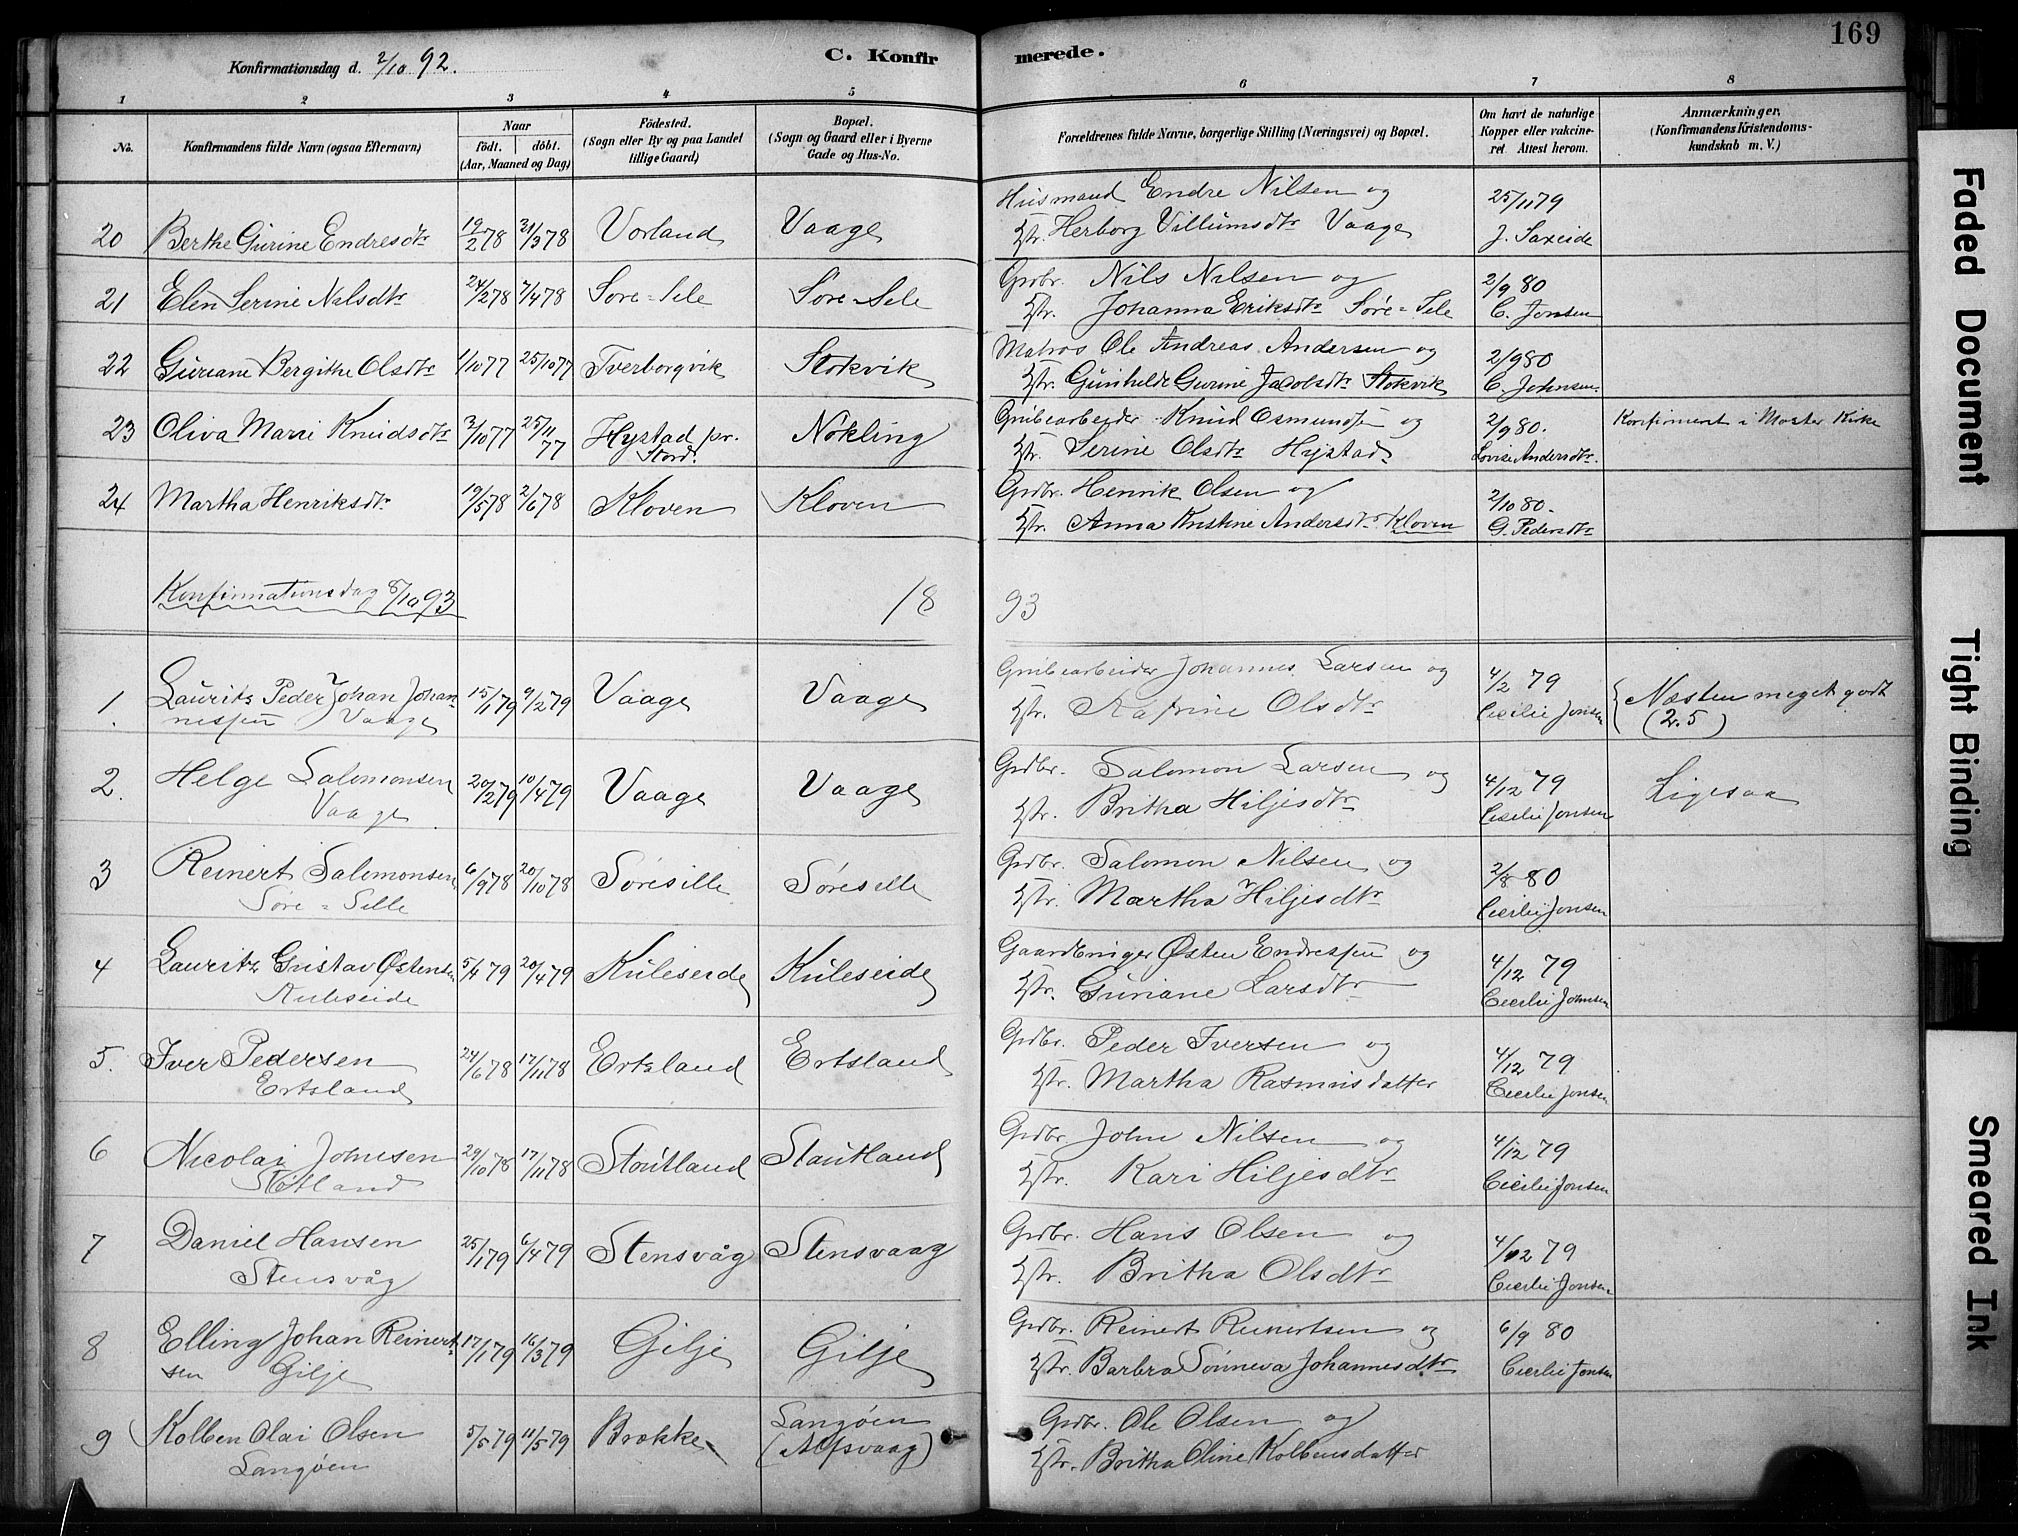 169
Konfirmationsdag d. 2/10 92.
C. Konfir merede.
1 2 3 4 5 6 7 8
No.
Konfirmandens fulde Navn (ogsaa Efternavn)
Naar
födt. döbt.
(Aar, Maaned og Dag)
Födested.
(Sogn eller By og paa Landet
tillige Gaard)
Bopæl.
(Sogn og Gaard eller i Byerne
Gade og Hus-No.
Forældrenes fulde Navne, borgerlige Stilling (Næringsvei) og Bopæl.
Om havt de naturlige
Kopper eller vakcine-
ret. Attest herom.
Anmærkninger,
(Konfirmandens Kristendoms-
kundskab m. V.)
Husmand Endre Nilsen og 25/11 79
20 Berthe Gurine Endresdtr 19/2 78 31/3 78 Vorland Vaage Hstr. Herborg Villumsdtr Vaage J. Saxeide
Grdbr. Nils Nilsen og 2/9 80
21 Elen Serine Nilsdtr 24/2 78 7/4 78 Søre-Sele Søre-Sele Hstr. Johanna Eriksdtr Søre-Sele C. Jonsen
Matros Ole Andreas Andersen og 2/9 80
22 Guriane Bergithe Olsdtr 1/10 77 25/10 77 Tverborgvik Stokvik Hstr. Gunhilde Gurine Jacobsdtr Stokvik C. Johnsen.
Grubearbeider Knud Osmundsen og 2/9 80. Konfirmert i Moster Kirke
23 Oliva Marri Knudsdtr 3/10 77 25/11 77 Hystad pr. Stord. Nøkling Hstr. Serine Olsdtr Hystad Lovise Andersdtr.
Grdbr. Henrik Olsen og 2/10 80.
24 Martha Henriksdtr 19/5 78 2/6 78 Kloven Kloven Hstr. Anna Kristine Andersdtr Kloven G. Pedersdtr
Konfirmationsdag 8/10 93 18 93
Grubearbeider Johannes Larsen og 4/2 79
1. Laurits Peder Johan Johan- 15/1 79 9/2 79 Vaage Vaage Hstr. Katrine Olsdtr Cecilie Jonsen Næsten meget godt
nessen Vaage (2.5)
Grdbr. Salomon Larsen og 4/12 79
2. Helge Salomonsen 20/2 79 10/4 79 Vaage Vaage Hstr. Britha Hiljesdtr Cecilie Jonsen Ligesaa
Vaage
Grdbr. Salomon Nilsen og 2/8 80
3 Reinert Salomonsen 6/9 78 20/10 78 Søresille Søresille Hstr. Martha Hiljesdtr Cecilie Jonsen
Søre-Sille
Gaardbruger Østen Endressen og 4/12 79
4 Lauritz Gustav Østensen 5/4 79 20/4 79 Kuleseide Kuleseide Hstr. Guriane Larsdtr Cecilie Johnsen
Kuleseide
Grdbr. Peder Iversen og 4/12 79
5. Iver Pedersen 24/6 78 17/11 78 Ertsland Ertsland Hstr. Martha Rasmusdatter Cecilie Jonsen
Ertsland
Grdbr. John Nilsen og 4/12 79
6 Nicolai Johnsen 29/10 78 17/11 78 Stoutland Stautland Hstr. Kari Hiljesdtr Cecilie Jonsen
Støtland
Grdbr. Hans Olsen og 4/12 79
7 Daniel Hansen 25/1 79 6/4 79 Stensvåg Stensvaag Hstr. Britha Olsdtr Cecilie Jonsen
Stensvåg
Grdbr. Reinert Reinertsen og 6/9 80
8 Elling Johan Reinert- 17/1 79 16/3 79 Gilje Gilje Hstr. Barbra Sønneva Johannesdtr Cecilie Jonsen
sen Gilje
Grdbr. Ole Olsen og
9 Kolben Olai Olsen 5/5 79 11/5 79 Brække Langøen (Alfsvaag) Hstr. Britha Oline Kolbensdatter
Langøen
Faded Document
Tight Binding
Smeared Ink